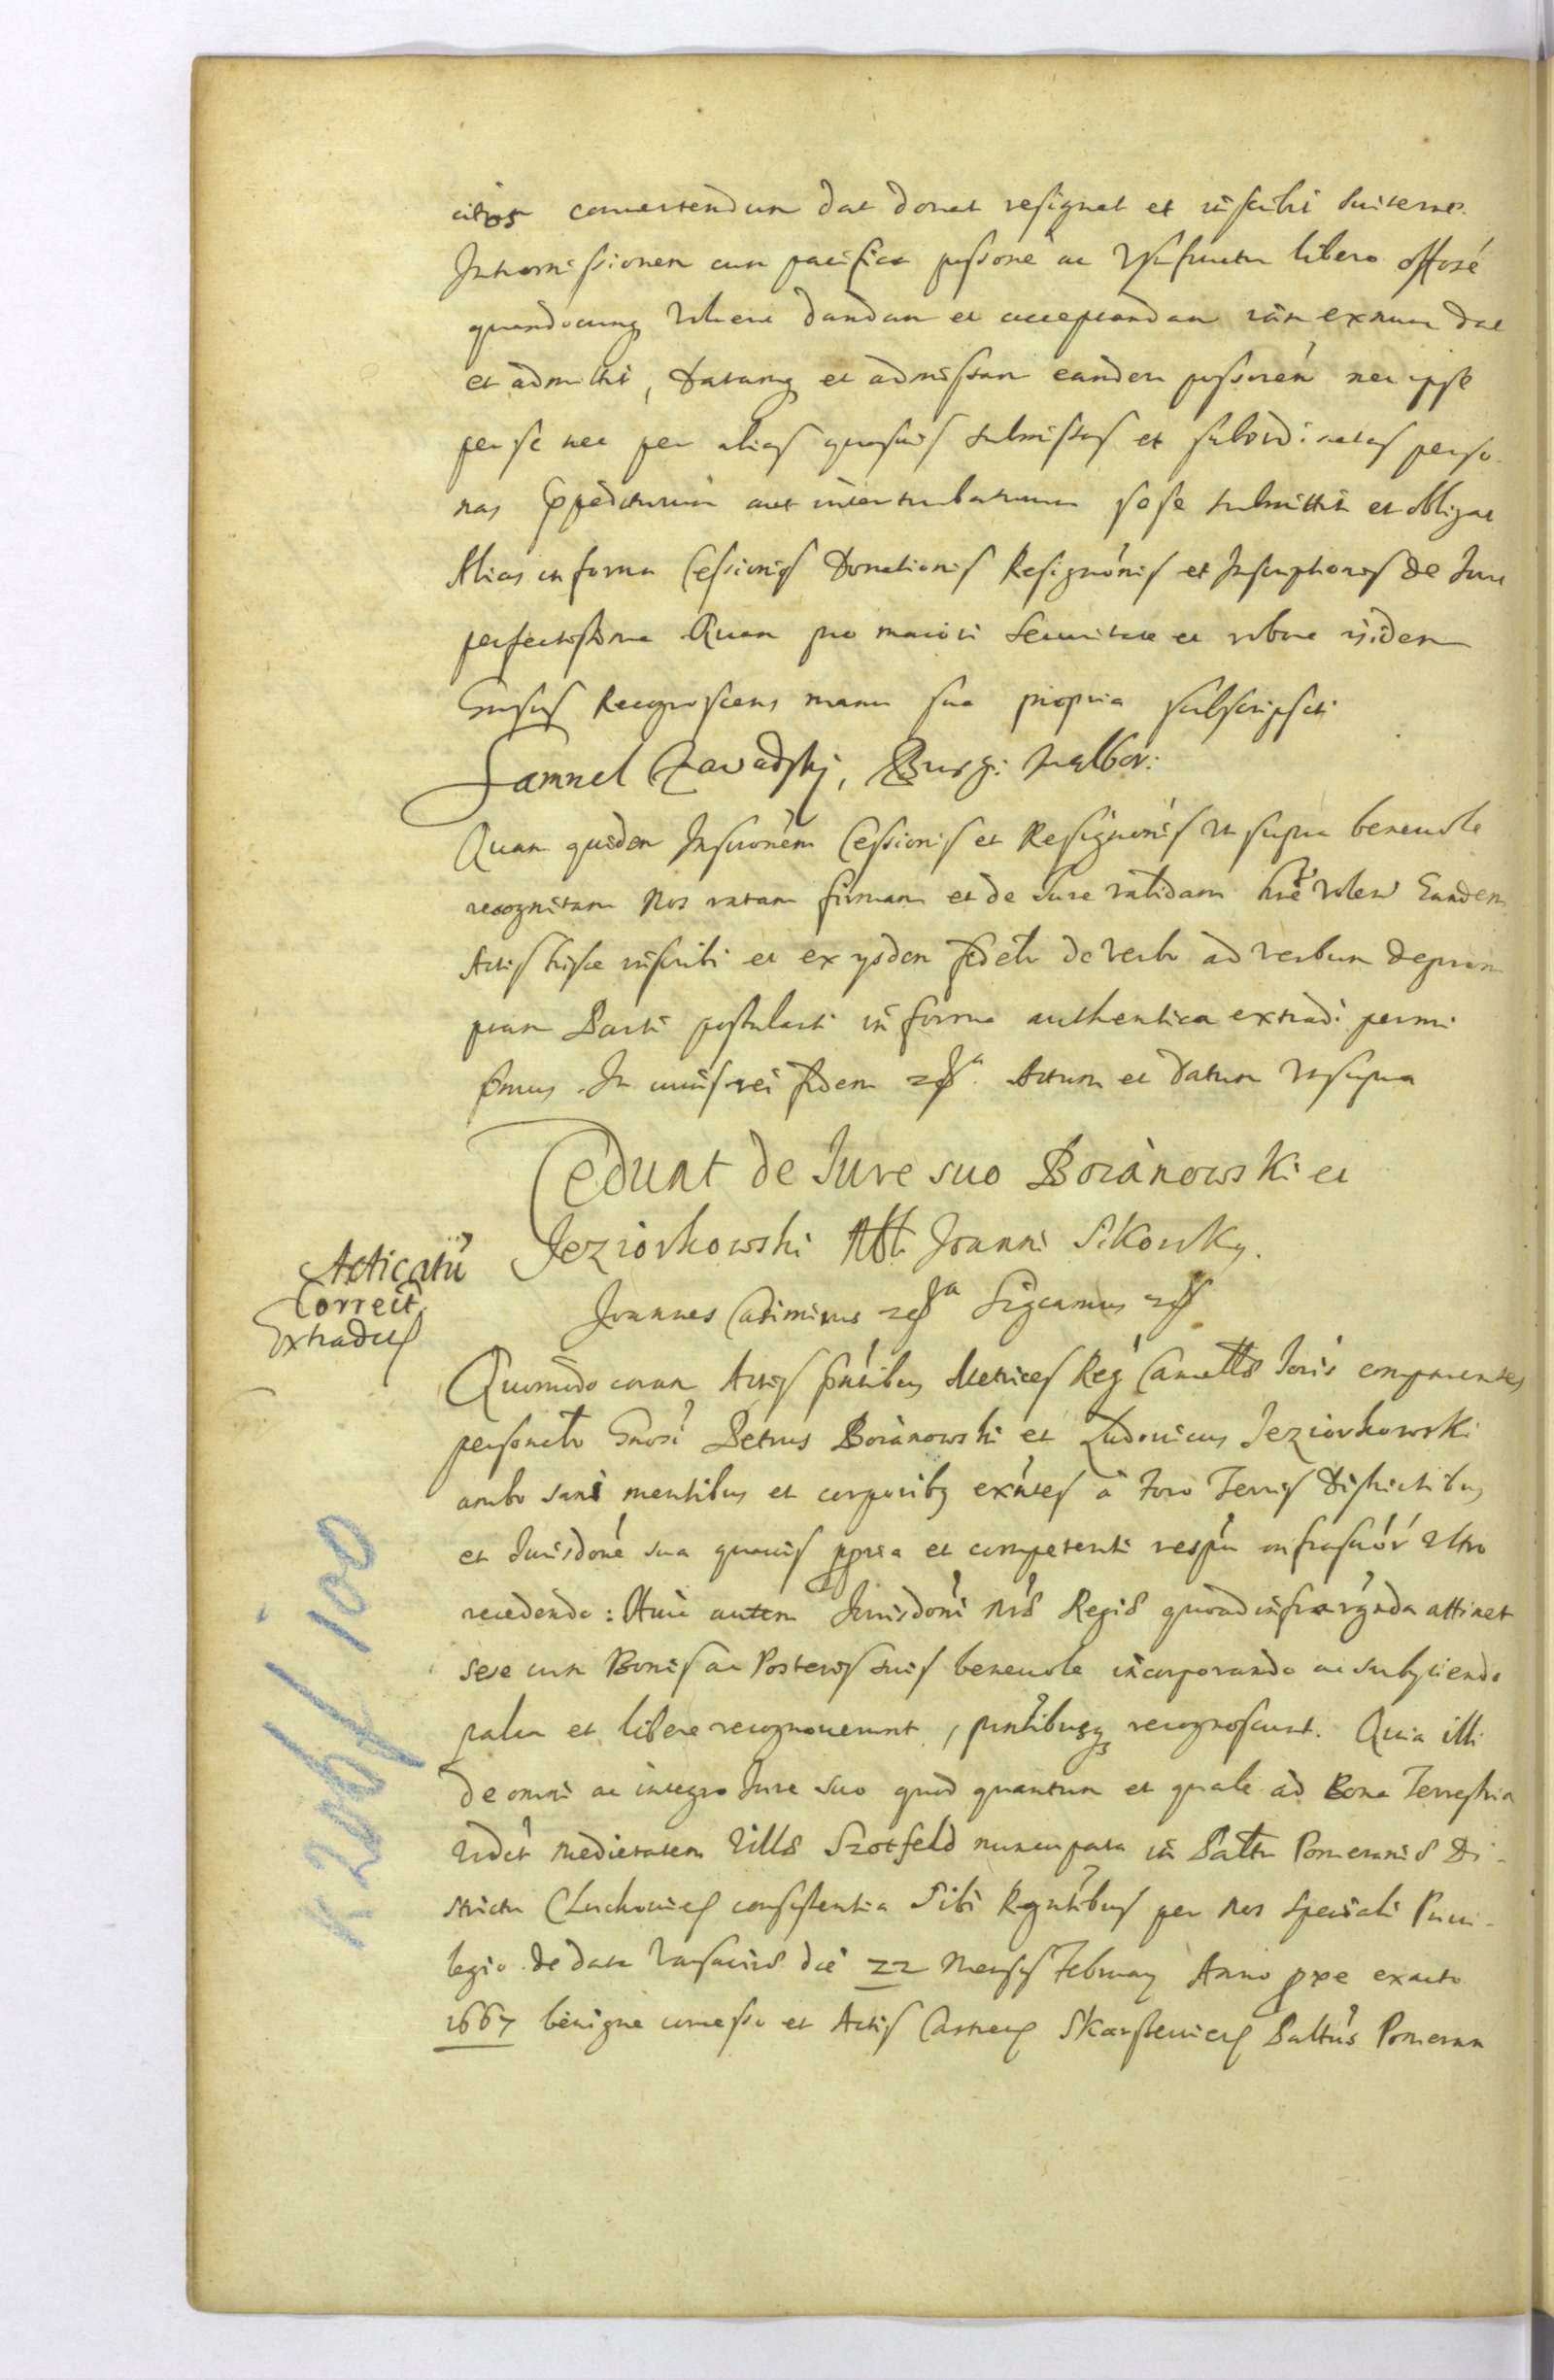 convertendum dat donat resignat et inscribit
Intromissionem cum pacifica possone ac Usufructu libero
quandocunq volueri dandam et acceptandam ex nunc dat
et admitti, Datamq et admissam eandem possonem nec ipse
per se nec per alias quasvis submissas et subordinatas perso-
nas aut interturbaturum sese submittit et obligat
Alias in forma Cessionis Donationis Resignonis et Inscriptionis de Jure
perfectissima Quam pro maiori securitate et robore idem
Gnsus Recognoscens manu sua propria subscripsit
Samuel Zawadzki, Burg:
Quam quidem Inscronem Cessionis et Resignonis ut supra benevole
recognitam Nos ratam firmam et de Jure validam volen Eandem
Actis hisce inscribi et ex ysdem fideli de verbo ad verbum deprom
ptam Parti postulanti in forma authentica extradi permi
simus. In cuius rei fidem Actum et datum Ut supra
Cedunt de Jure suo Boianowski et
Jeziorkowski Joanni Sikorsky.
Acticatu
Correct
Extradit
Joannes Casimirus Significamus
Quomodo coram Actis pntibus Metrices Reg Cancell comparentes
personalr Gnosi Petrus Boianowski et Ludovicus Jeziorkowski
ambo sani mentibus et corporibq exntes à Foro Terris Districtibus
et Jurisdone sua quavis ppria et competenti infrascror
recedendo: Huic autem Jurisdoni Nrae Regiae quoad infra rgnda attinet
sese cum Bonis ac Posteris suis benevole incorporando ac subyciendo
palam et libere recognoverunt, pntibusq recognoscunt. Quia illi
de omni ac integro Jure suo quod quantum et quale ad Bona Terrestria
Medietatem Villae Szotfeld nuncupata in Pomeraniae Di-
strictu Cluchovien consistentia Sibi Rgntibus per Nos speciali Privi-
legio de data Varsaviae die 22 Mensis February Anno pxe exacto
1667 benigne concesso et Actis Castren Skarszevien Pomeran
K 206 f 100